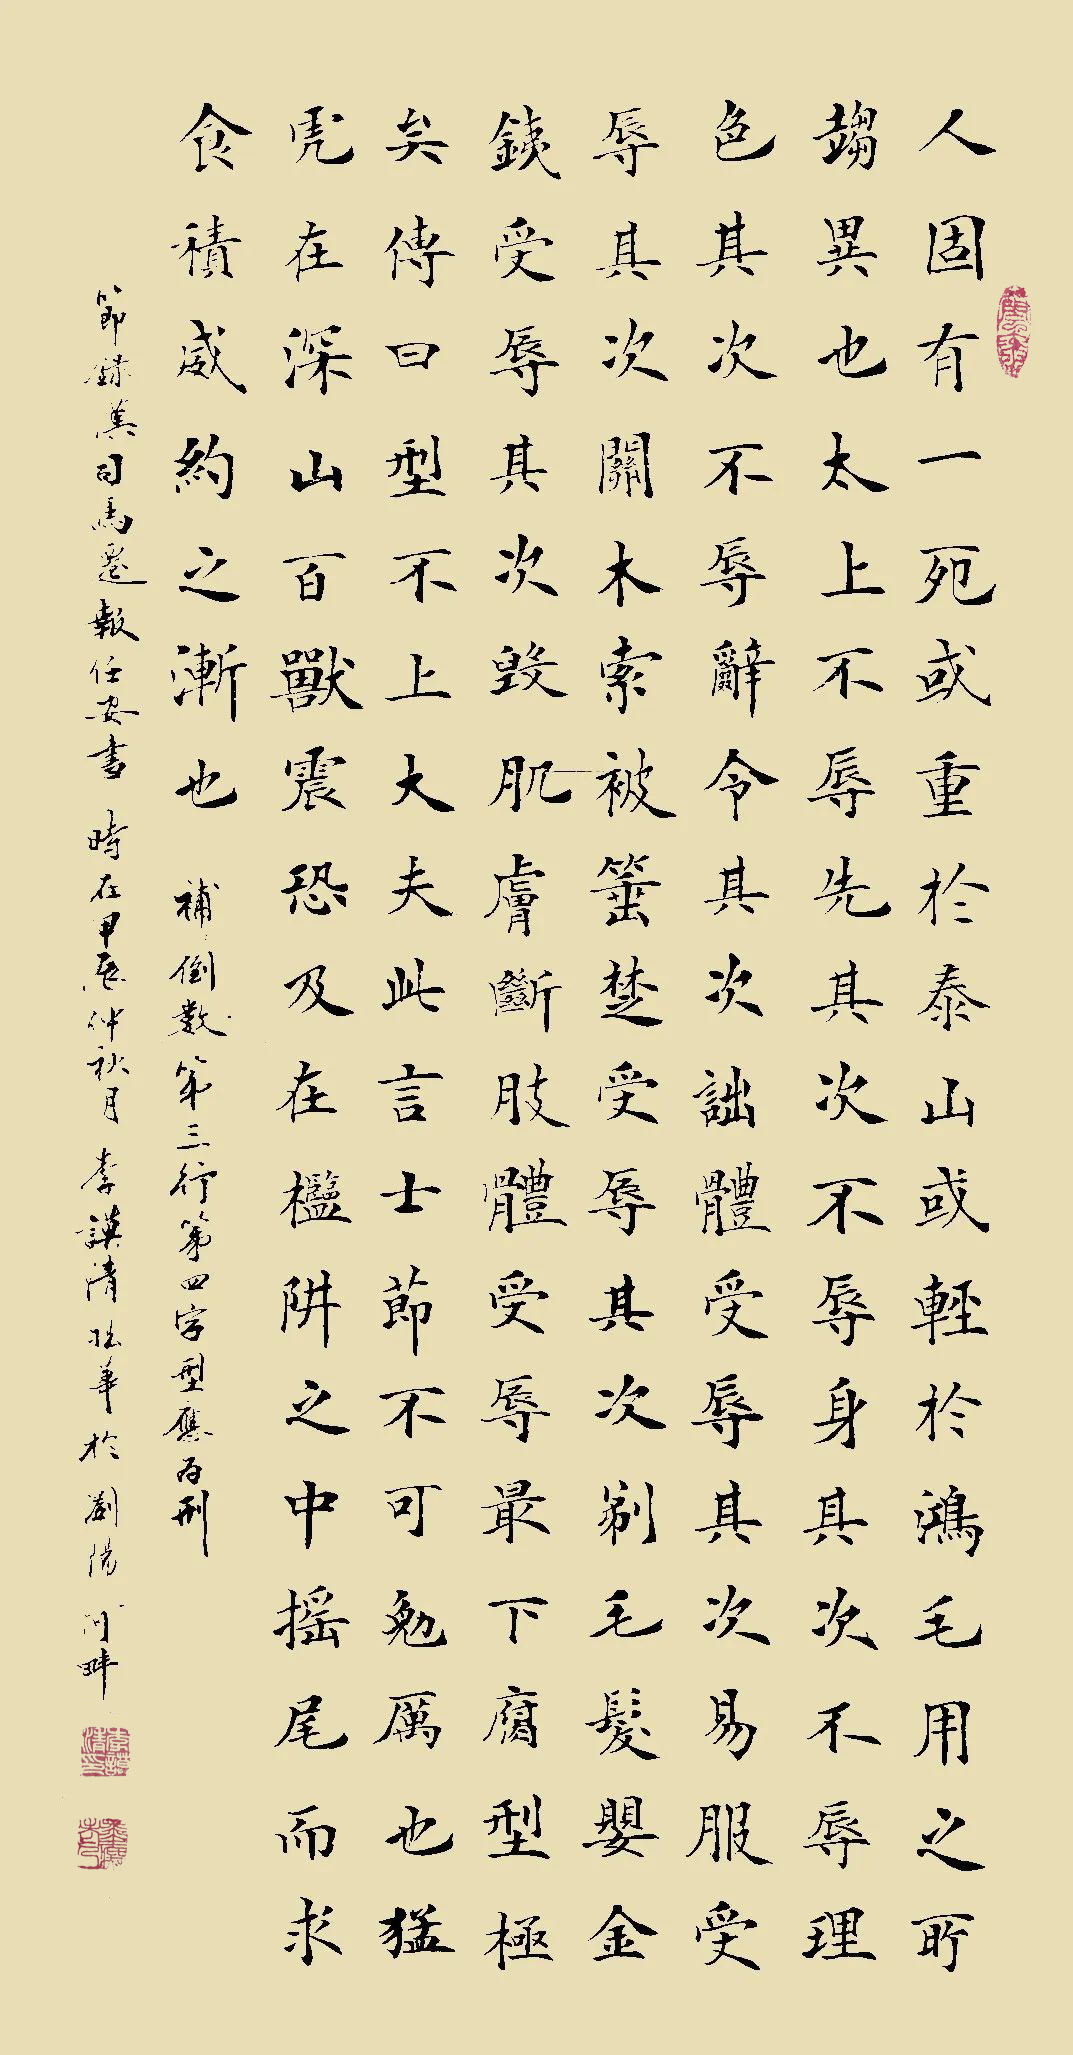 人固有一死或重於泰山或輕於鴻毛用之所
趨異也太上不辱先其次不辱身其次不辱理
色其次不辱辭令其次詘體受辱其次易服受
辱其次關木索被箠楚受辱其次剔毛髮嬰金
銕受辱其次毀肌膚斷肢體受辱最下腐型極
矣傳曰型不上大夫此言士節不可勉厲也猛
虎在深山百獸震恐及在檻阱之中搖尾而求
食積威約之漸也
補倒數第三行第四字型應為刑
節錄漢司馬遷報任安書 時在甲辰仲秋月 李謨清 於瀏陽河畔